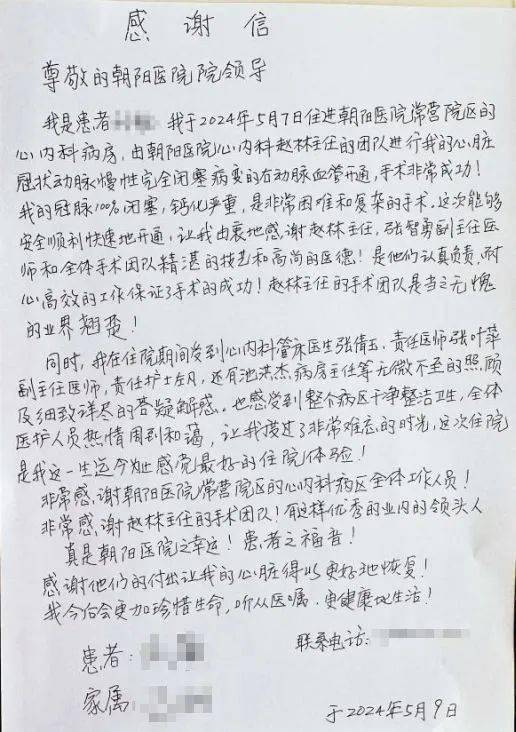 感谢信
尊敬的朝阳医院院领导
我是患者 我于2024年5月7日住进朝阳医院常营院区的
心内科病房,由朝阳医院心内科赵林主任的团队进行我的心脏
冠状动脉慢性完全闭塞病变的右动脉血管开通,手术非常成功!
我的冠脉100%闭塞,钙化严重,是非常困难和复杂的手术,这次能够
安全顺利快速地开通,让我由衷地感谢赵林主任,张智勇副主任医
师和全体手术团队精湛的技艺和高尚的医德!是他们认真负责,耐
心高效的工作保证了手术的成功!赵林主任的手术团队是当之无愧
的业界翘楚!
同时,我在住院期间受到心内科管床医生张倩,责任医师张叶萍
副主任医师,责任护士,还有池洪杰病房主任等无微不至的照顾
及细致详尽的答疑解惑,也感受到整个病区干净整洁卫生,全体
医护人员热情周到和蔼,让我度过了非常难忘的时光,这次住院
是我这一生迄今为止感觉最好的住院体验!
非常感谢朝阳医院常营院区的心内科病区全体工作人员!
非常感谢赵林主任的手术团队!有这样优秀的业内的领头人
真是朝阳医院之幸运!患者之福音!
感谢他们的付出让我的心脏得以更好地恢复!
我今后会更加珍惜生命,听从医嘱,更健康地生活!
患者:
联系电话:
家属:
于2024年5月9日